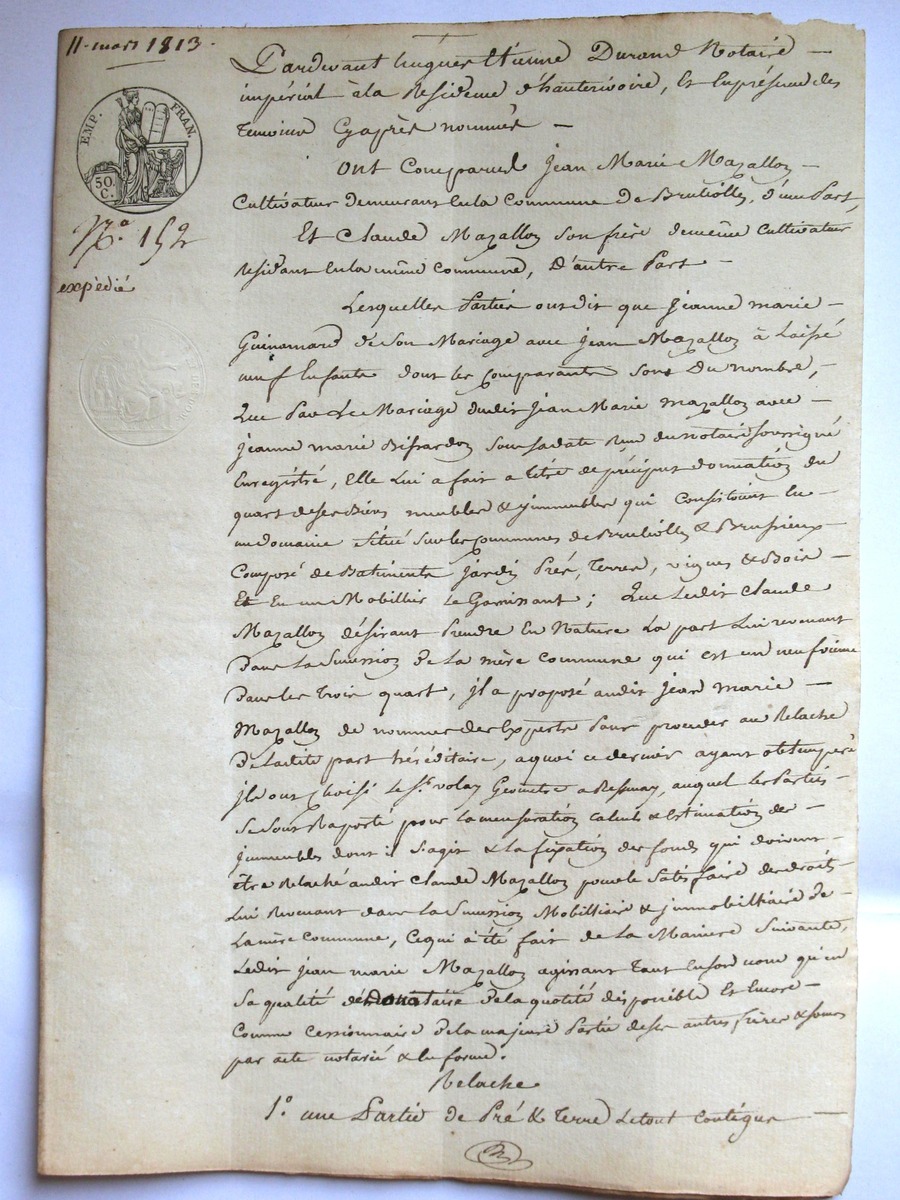 11 mars 1813.
EMP. FRAN.
50. C.
N.º 152
expédié
Pardevant hugues Etienne Durand Notaire
impérial à la Residence d'hauterivoire, Et En présence des
temoins Cyaprès nommés
Ont Comparus Jean Marie Mazallon
Cultivateur demeurant En la Commune de Brulioles, d'une Part,
Et Claude Mazallon son frère demême Cultivateur
residant En la même Commune, D'autre Part
Lesquelles Parties ont dit que Jeanne marie
Guinamard de Son Mariage avec Jean Mazallon à Laissé
neuf Enfants dont les Comparants Sont Du nombre,
Que Par Le Mariage dudit Jean Marie Mazallon avec
Jeanne marie sous sa date Reçu du notaire Soussigné
Enregistré, Elle Lui a fait a titre de préciput donnation du
quart de ses Biens meubles & jmmeubles qui Consistoient En
un Domaine Situé Sur les Communes de Brulioles & Brussieux
Composé de Batiments jardin Prés, Terres, vignes & Bois
Et En un Mobillier Le Garnissant; Que Ledit Claude
Mazallon désirant Prendre En Nature La part Lui revenant
Dans La Succession de La mère Commune qui Est un neufvieme
Dans les Trois quart, jl a proposé audit Jean marie
Mazallon de nommer des Experts Pour proceder au Relache
De Ladite part héréditaire, a quoi ce dernier ayant obtemperé
jls ont Choisi Le S.r volay Geomêtre a Ressinay, auquel les Parties
Se Sont Raporté pour La mensuration Calculs & Estimation des
jmmeubles dont il S'agit & La fixation des fonds qui doivent
être Relaché audit Claude Mazallon pour le Satisfaire des droits
Lui Revenant dans La Succession Mobilliaire & jmmobilliaire de
La mère Commune, Ce qui à été fait de La Maniere Suivante,
Ledit Jean marie Mazallon agissant Tant En Son nom qu'en
Sa qualité de donataire de la quotité disponible Et Encore
Comme Cessionnaire de la majeure Partie de ses autres frères & soeurs
par acte notarié & En forme.
Relache
1.º une Partie de Pré & Terre Le tout Contigus